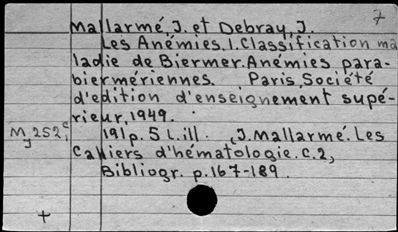 7
Mallarmé, J. et Debray, J.
Les Anémies. I. Classification ma
ladie de Biermer. Anémies para-
biermériennes. Paris, Société
d'edition d'enseignement supé-
rieur, 1949.
191 p. 5 L. ill. (J. Mallarmé. Les
Cahiers d'hématologie. C. 2,
Bibliogr. p. 167-189.
+